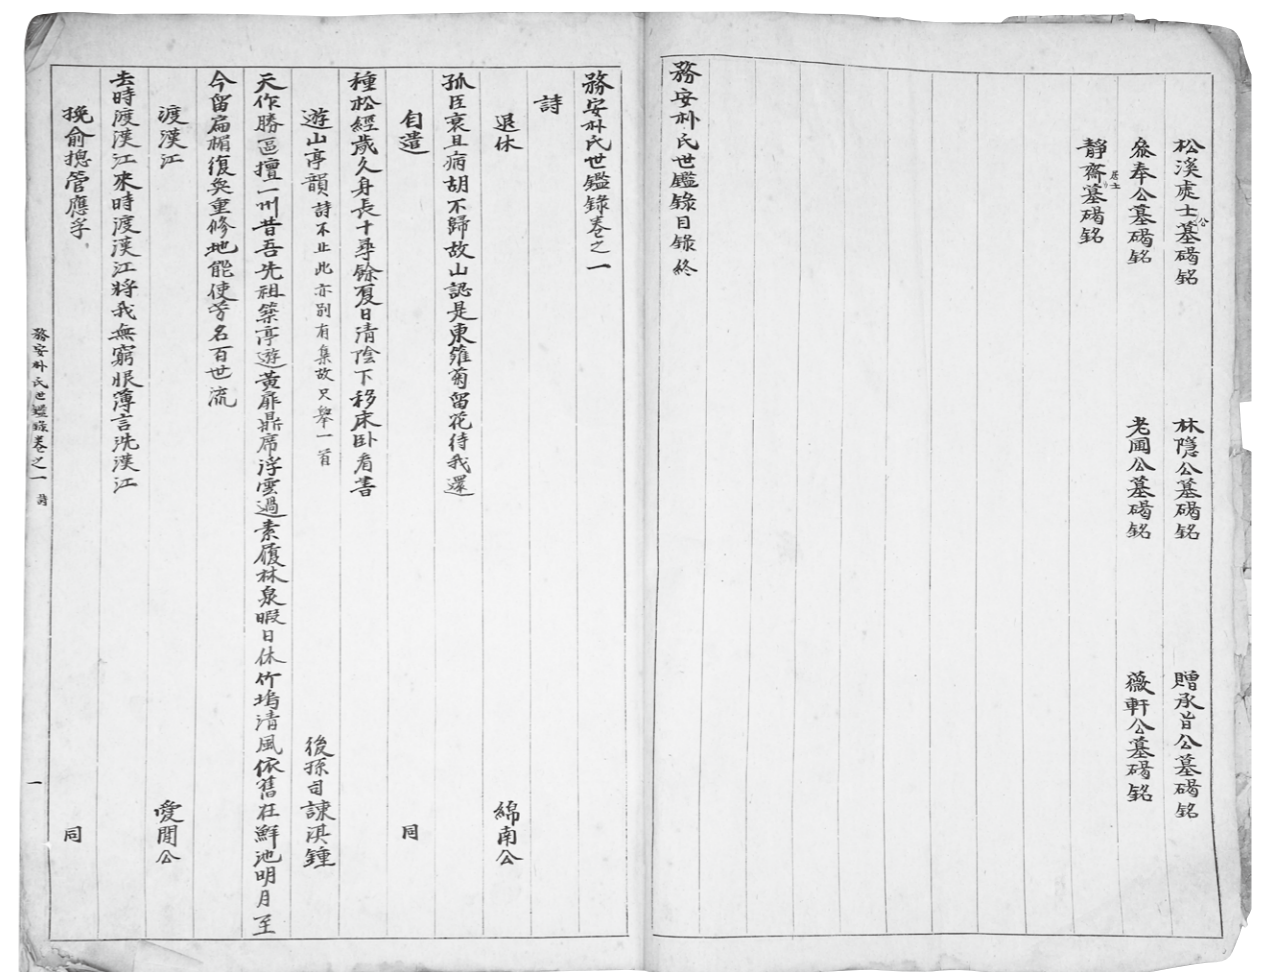 松溪處士公墓碣銘 林隱公墓碣銘 贈承旨公墓碣銘
叅奉公墓碣銘 老圃公墓碣銘 薇軒公墓碣銘
靜齋居士墓碣銘
務安朴氏世鑑錄目錄終
務安朴氏世鑑錄卷之一
詩
退休 綿南公
孤臣衰且病胡不歸故山認是東籬菊留花待我還
自遣 同
種松經歲久身長十尋餘夏日清陰下移床卧看書
遊山亭韻 詩不止此亦別有集故只擧一首 後孫司諫淇鍾
天作勝區擅一州昔吾先祖築亭遊黃扉鼎席浮雲過素履林泉暇日休竹塢清風依舊在鮮池明月至
今留扁楣復奐重修地能使芳名百世流
渡漢江 愛閒公
去時渡漢江來時渡漢江將我無窮恨薄言洗漢江
挽俞摠管應孚 同
務安朴氏世鑑錄卷之一 詩 一